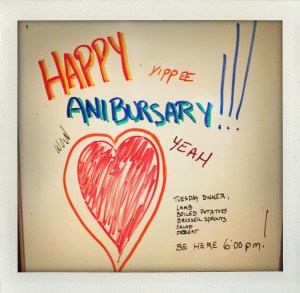 HAPPY
YIPPEE
ANIBURSARY!!!
WOW
YEAH
TUESDAY DINNER,
LAMB
BOILED POTATOES
BRUSSEL SPROUTS
SALAD
DESERT
BE HERE 6:00 pm.